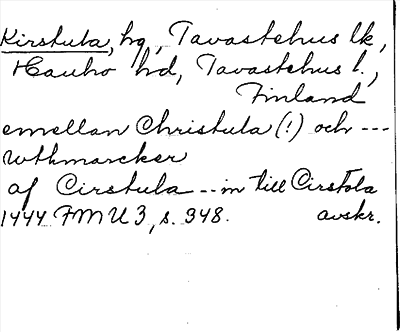 Kirstula, hg, Tavastehus lk,
Hauho hd, Tavastehus l.,
Finland
emellan Christula (!) och ---
wthmarcker
af Cirstula -- in till Cirstola
1444 FMU 3, s. 348. avskr.